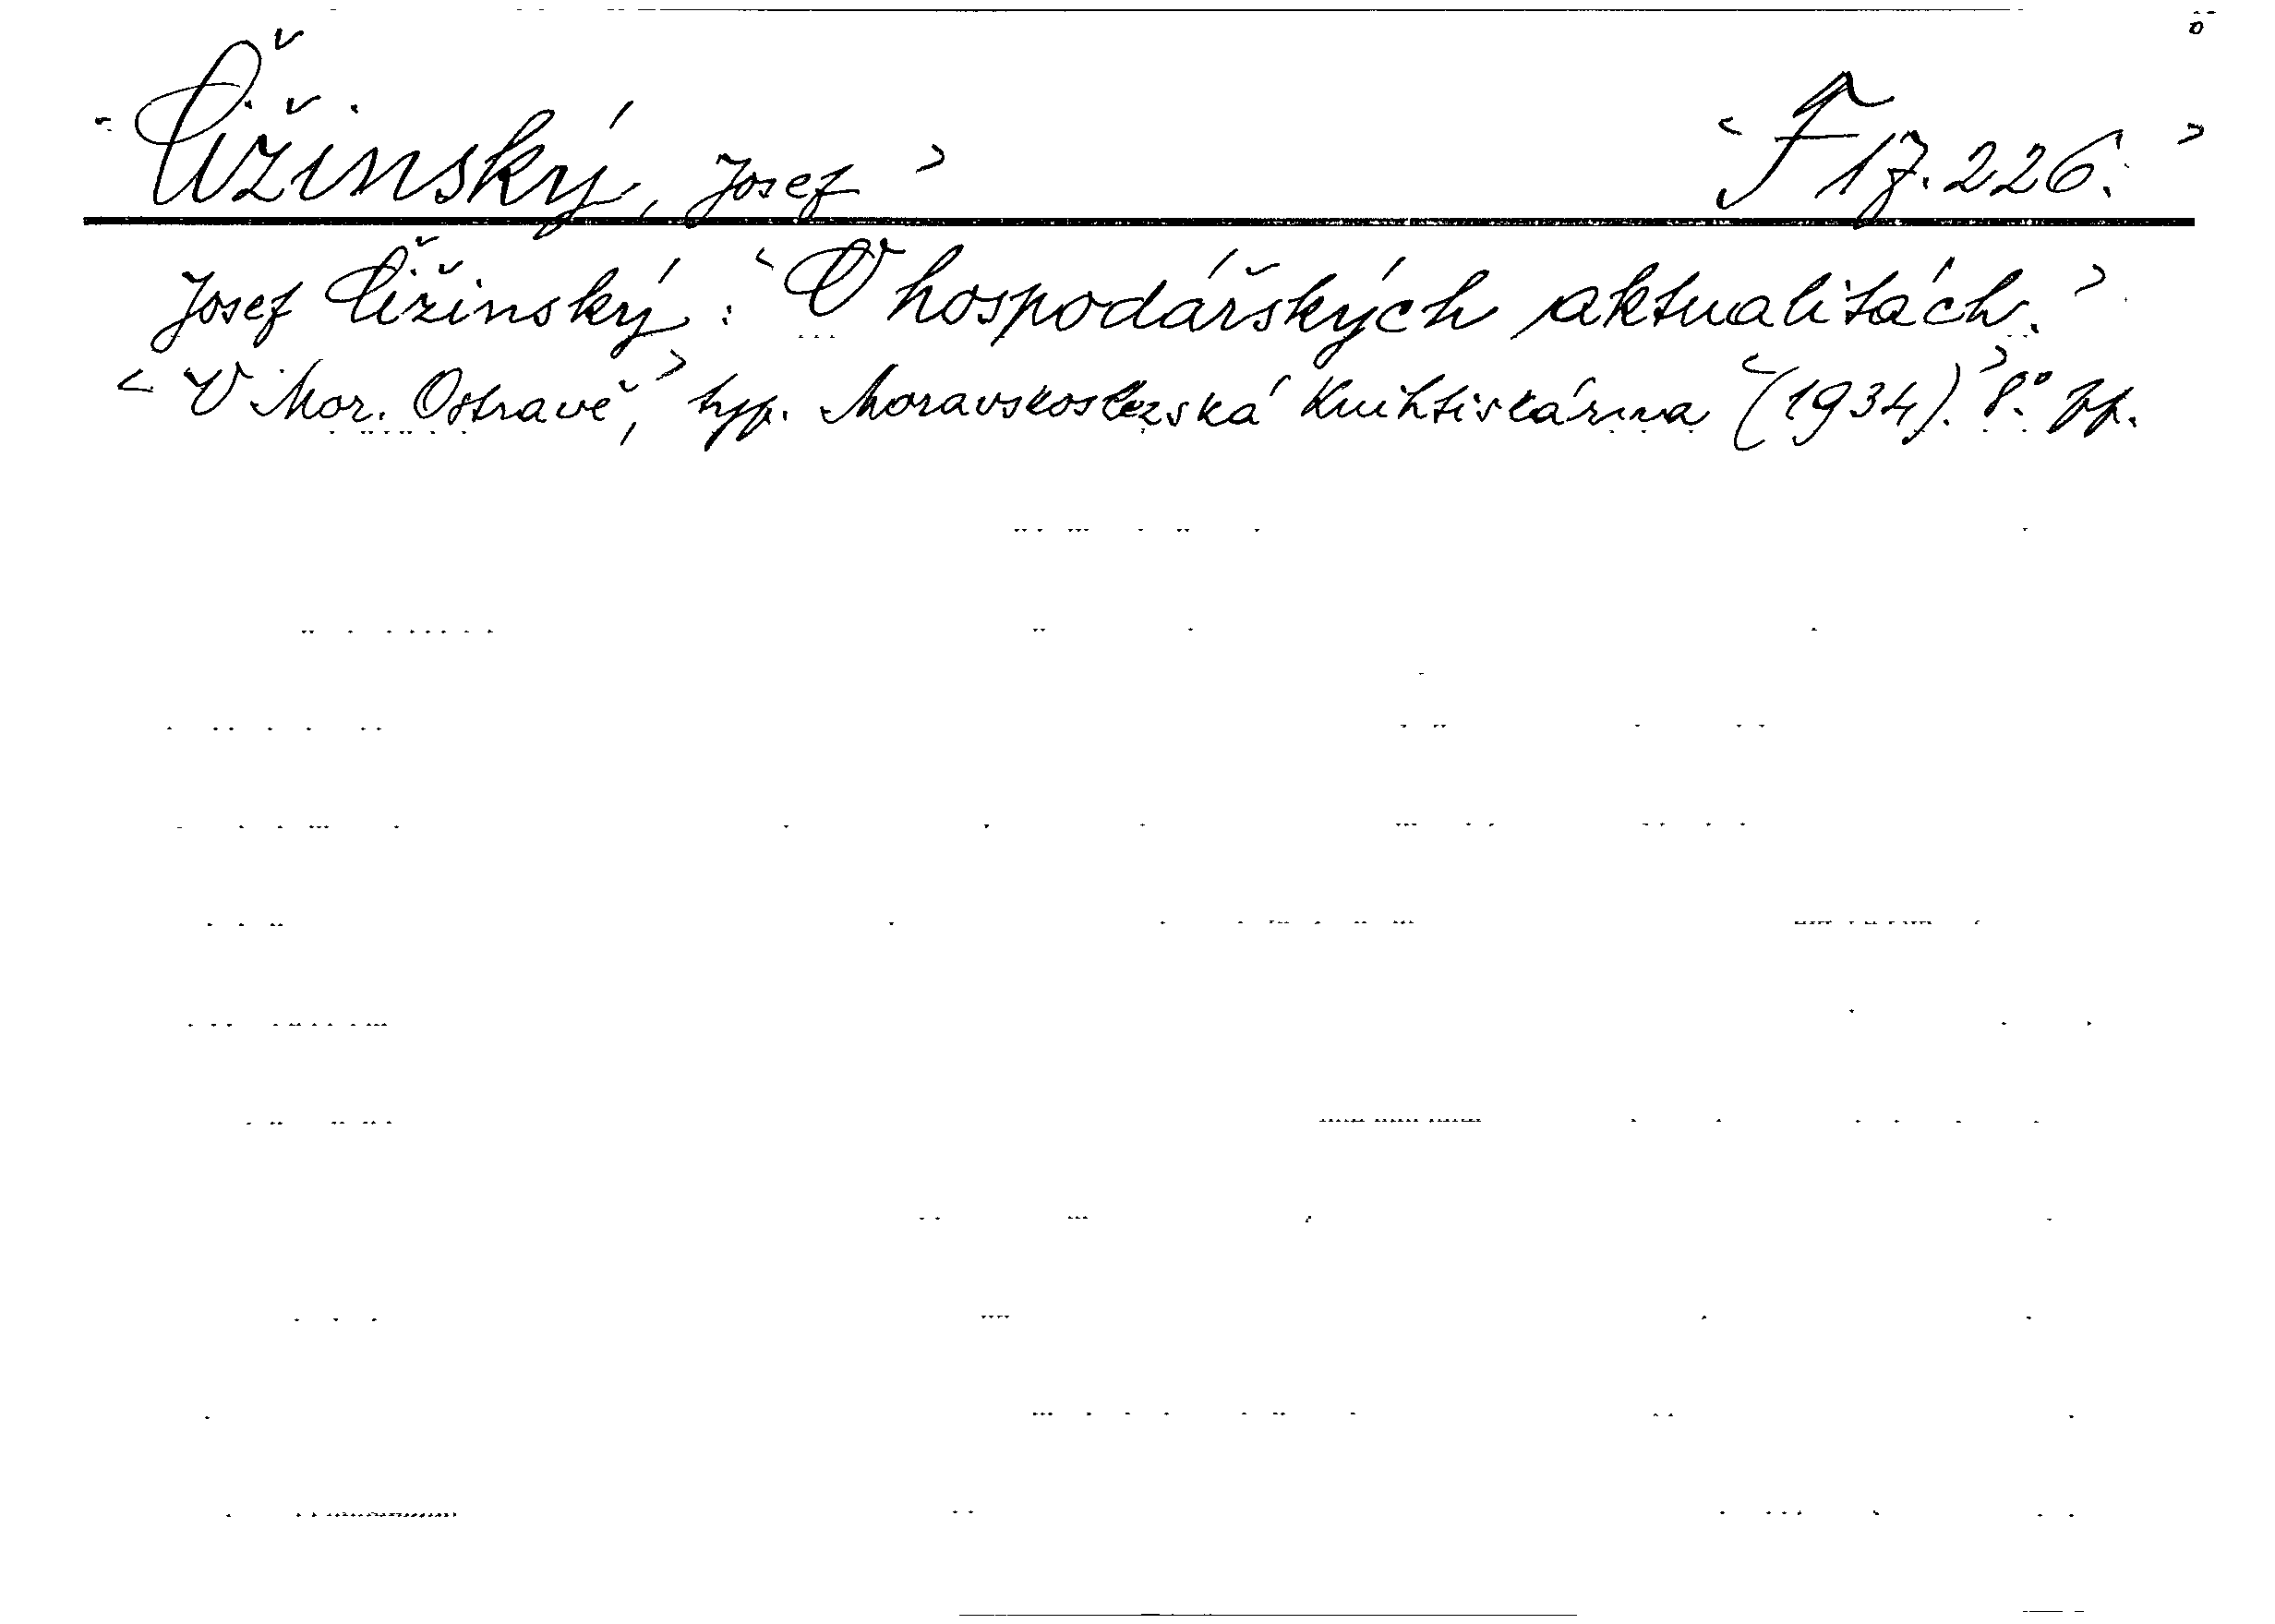 ‹ Čižinský, Josef › ‹ F 17.226. ›
Josef Čižinský: ‹ O hospodářských aktualitách. ›
‹ V Mor. Ostravě, › typ. Moravskoslezská Knihtiskárna ‹ (1934). › 8°.